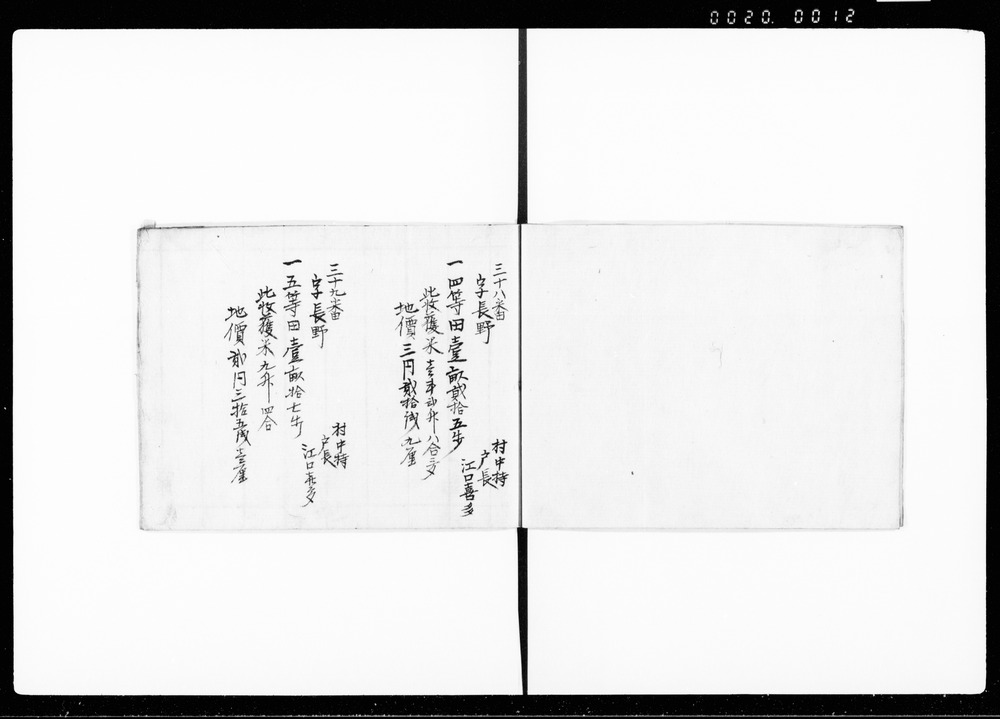 0020. 0012
三十八番
字長野
一四等田壹畝貳拾五歩
此收獲米壹斗弐升八合三夕
地價三円貳拾銭九厘
村中持
戸長
江口喜多
三十九番
字長野
一五等田壹畝拾七歩
此收獲米九升四合
地價貳円三拾五銭壹厘
村中持
戸長
江口喜多